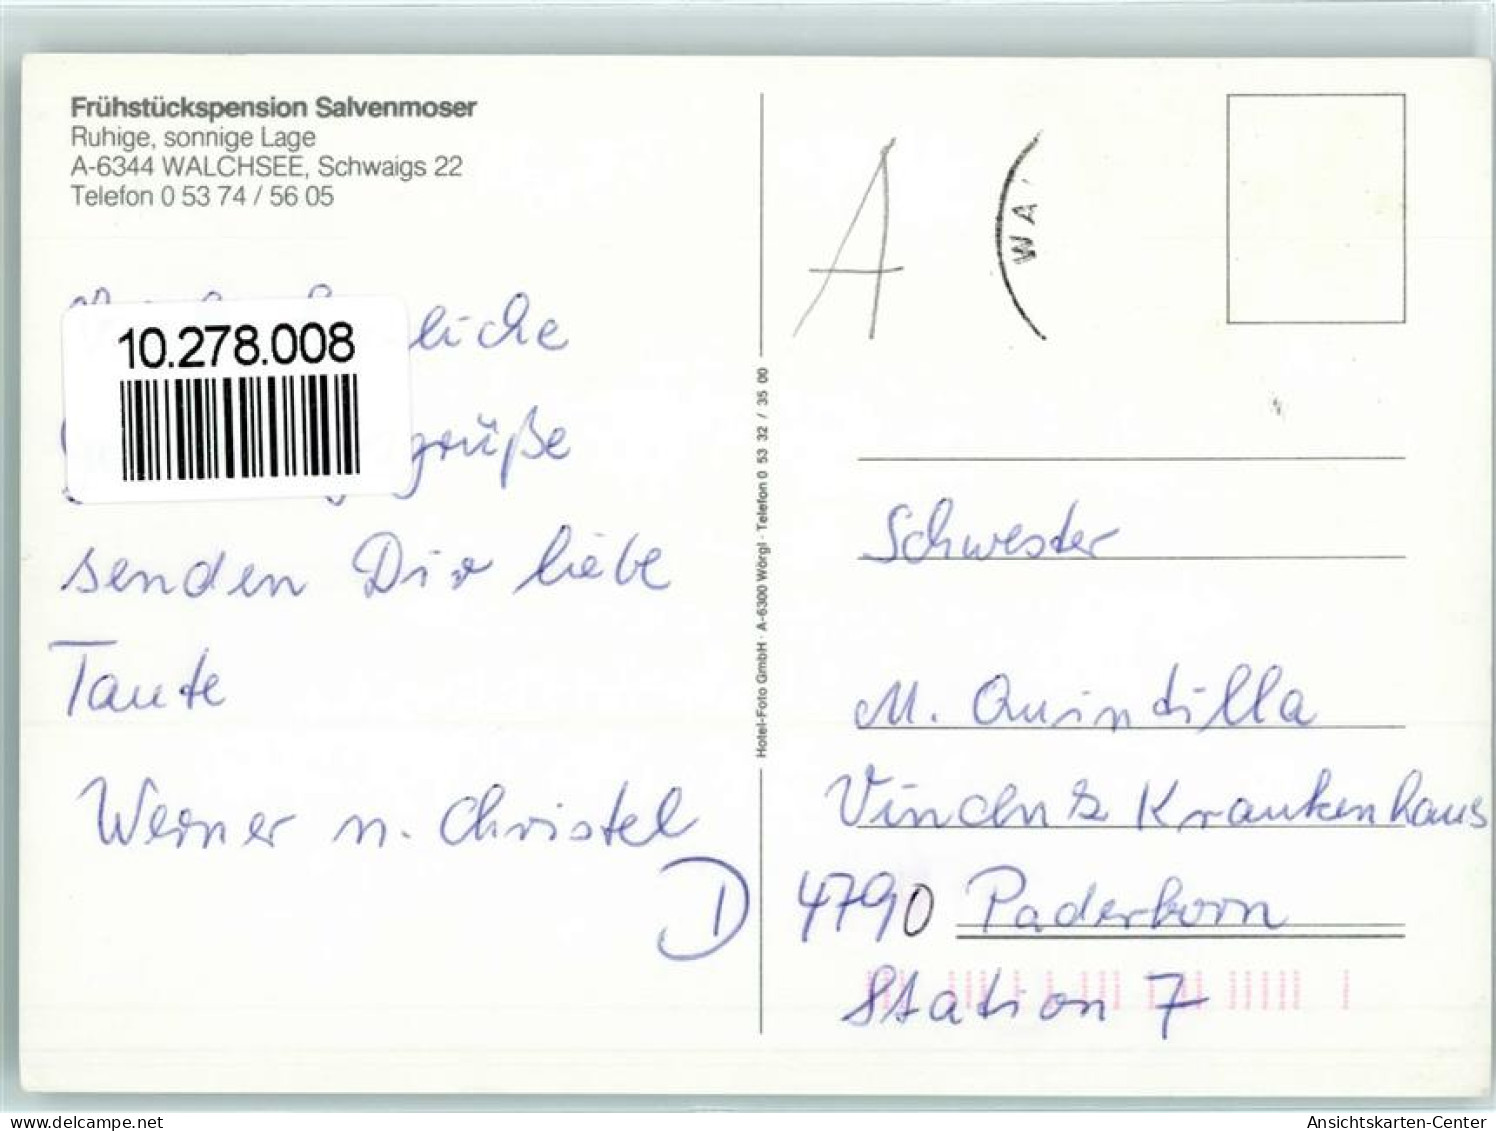 Frühstückspension Salvenmoser
Ruhige, sonnige Lage
A-6344 WALCHSEE, Schwaigs 22
Telefon 0 53 74 / 56 05
10.278.008
liche
grüße
senden Dir liebe
Tante
Werner u. Christel
Hotel-Foto GmbH · A-6300 Wörgl · Telefon 0 53 32 / 35 00
A
WA
Schwester
M. Quindilla
Vincenz Krankenhaus
D 4790 Paderborn
Station 7
delcampe.net
Ansichtskarten-Center